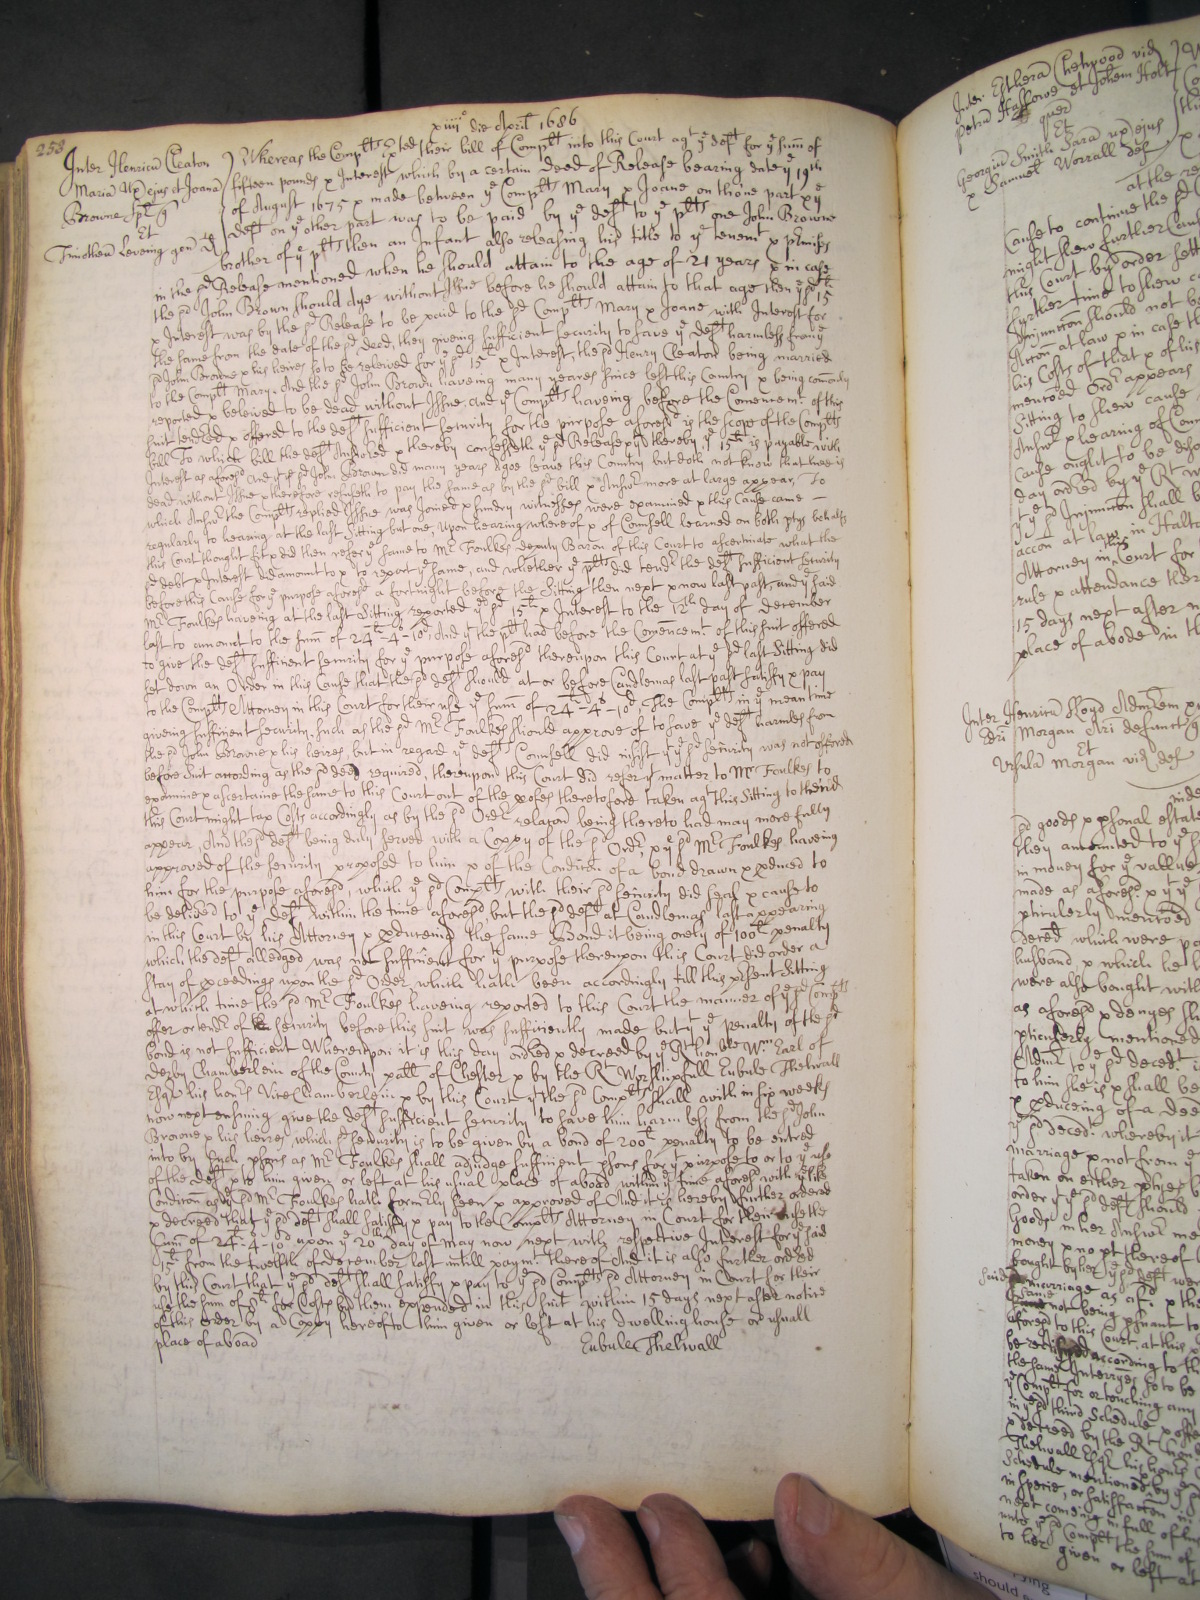 253
xiiii° die Aprił 1686
Inter Henricū Cleaton
Mariā Ux ejus et Joanā
Browne Spl q
Et
Timotheū Leveing gen def
Whereas the Complts exħed their bill of Complt into this Court agt ye deft for ye sum̄ of
fifteen pounds x Interest which by a certain deed of Release bearing date ye 19th
of August 1675 x made between ye Complts Mary x Joane on thone part x ye
deft on ye other part was to be paid by ye deft to ye plts one John Browne
brother of ye plts then an Infant also releasing his title to ye tenemt x p̄misses
in the sd Release mentioned when he should attain to the age of 21 years x in case
the sd John Brown should dye without Issue before he should attain to that age then ye sd 15th
x Interest was by the sd Release to be paid to the sd Complts Mary x Joane with Interest for
the same from the date of the sd deed, they giveing sufficient security to save ye deft harmless from ye
sd John Browne x his heires so to be releived for ye sd 15l x Interest, the sd Henry Cleaton being married
to the Complt Mary. And the sd John Brown haveing many yeares since left this Cuntry x being com̄only
reported x beleived to be dead without Issue, and ye Complts haveing before the Comencemt of this
suit tendred x offered to the deft sufficient security for the purpose aforesd is the scope of the Complts
bill To which bill the deft Answered x thereby confesseth ye sd Release x yt thereby ye 15l is payable with
Interest as aforesd And yt ye sd John Brown did many years agoe leave this Country but doth not know that hee is
dead without Issue x therefore refuseth to pay the same as by the sd bill x Answr more at large appear, To
which Answr the Complts replied Issue was joined x sundry witnesses were examined x this Cause came
regularly to hearing at the last Sitting but one, Upon hearing whereof x of Counsell learned on both ptys behalfs
this Court thought fit x did then refer ye same to Mr Foulkes deputy Baron of this Court to ascertaine what the
sd debt x Interest did amount to x to report ye same, and whether ye plts did tendr the deft sufficient security
before this Cause for ye purpose aforesd a fortnight before the Sitting then next x now last past, and ye said
Mr Foulkes haveing at the last Sitting reported ye sd 15l x Interest to the 12th day of december
last to amount to the sum̄ of 24l-4s-10d, And yt the plts had before the Comencemt of this suit offered
to give the deft sufficient security for ye purpose aforesd thereupon this Court at ye sd last Sitting did
set down an Order in this Cause that the sd deft should at or before Candlemas last past satisfy x pay
to the Complts Attorney in this Court for their use ye sum̄ of 24l-4s-10d The Complts in ye mean time
giveing sufficient security such as the sd Mr Foulkes should approve of to save ye deft harmless from
the sd John Browne x his heires but in regard ye defts Counsell did insist yt ye sd security was not offered
before Suit according as the sd deed required, thereupon this Court did refer ye matter to Mr Foulkes to
examine x ascertaine the same to this Court out of the p̄ofes theretofore taken agt this Sitting to thend
this Court might tax Costs accordingly as by the sd Ordr relac̄on being thereto had may more fully
appear, And the sd deft being duly served with a Coppy of the sd Ordr, x ye sd Mr Foulkes haveing
approved of the security proposed to him x of the Condic̄on of a bond drawn x p̄duced to
him for the purpose aforesd, which ye sd Complts with their sd security did seal x cause to
be delivred to ye deft within the time aforesd, but the sd deft at Candlemas last appearing
in this Court by his Attorney x p̄duceing the same Bond it being onely of 100l penalty
which the deft alledged was not sufficient for ye purpose thereupon this Court did order a
stay of p̄ceedings upon the sd Order which hath been accordingly till this p̄sent Sitting
at which time the sd Mr Foulkes haveing reported to this Court the manner of ye sd Complts
offer or tendr of security before this suit was sufficiently made but yt ye penalty of the sd
bond is not sufficient Whereupon it is this day ordred x decreed by ye Rt Honble Wm Earl of
Derby Chamberlein of the County pall of Chester x by the Rt Worshipfull Eubule Thelwall
Esqr his honrs ViceChamberlein x by this Court yt the sd Complts shall within six weeks
now next ensuing give the deft sufficient security to save him harmless from the sd John
Browne x his heires, which sd security is to be given by a bond of 200l penalty to be entred
into by such p̄sons as Mr Foulkes shall adjudge sufficient p̄sons for yt purpose to or to ye use
of the deft x to him given or left at his usual place of aboad within ye time aforesd with ye like
Condic̄on as ye sd Mr Foulkes hath formerly seen x approved of And it is hereby further ordered
x decreed that ye sd deft shall satisfy x pay to the Complts Attorney in Court for their use the
sum̄ of 24l-4-10d upon ye 20th day of May now next with respective Interest for ye said
15l from the twelfth of december last untill paymt thereof And it is also further ordred
by this Court that ye sd deft shall satisfy x pay to ye sd Complts sd Attorney in Court for their
use the sum of 8l for Costs by them expended in this suit within 15 days next after notice
of this order by a Coppy hereof to him given or left at his dwelling house or usuall
place of aboad
Eubule Thelwall
Inter Estherā Chetwood vid
Petrū Hassowe et Johem Holt
quer
Et
Georgiū Smith Sarā uxz ejus
x Samuel Worrall def
at the re
Cause to continue the sd
might shew further Caus
this Court by order sett
further time to shew c
Injunction should not be
Acc̄on at law x in case th
his Costs of that x of his
menc̄oed Ordr appears
Sitting to shew cause
Answr x hearing of Coun
cause ought to be dism
day ordred by ye Rt
yt ye sd Injunction shall b
acc̄on at law in Halto
Attorney in this Court for
rule x attendance ther
15 days next after n
place of abode in th
Inter Henricū Lloyd Admstem
Edri Morgan Ari defunct q
Et
Ursulā Morgan vid def
inde
sd goods x p̄sonal estate
they amounted to ye
in money for ye vallue
made as aforesd x yt ye
pticulerly menc̄oed
deced which were p
husband x which he
were also bought with
as aforesd x denyes sh
pticulerly mentioned
Admr to ye sd decedt
to him she is x shall be
x p̄duceing of a deed
ye sd decedt whereby it
marriage x not from ye
taken on either ptyes b
order yt ye sd deft should
goods in her Answr me
money x no pt thereof
bought by her ye sd deft were
said marriage as afsd x the
same not being p̄suant to
aforesd to this Court, at this
be rectified according to th
the same Interr̄yes so to be
ye Complt for or touching any
in ye sd third Schedule x offe
x decreed by the Rt hon
Thelwall Esqr his honrs
Schedule mentioned by ye
in specie, or satisfacc̄on in
next comeing in full of
unto ye sd Complt the sum of
to her given or left at
should